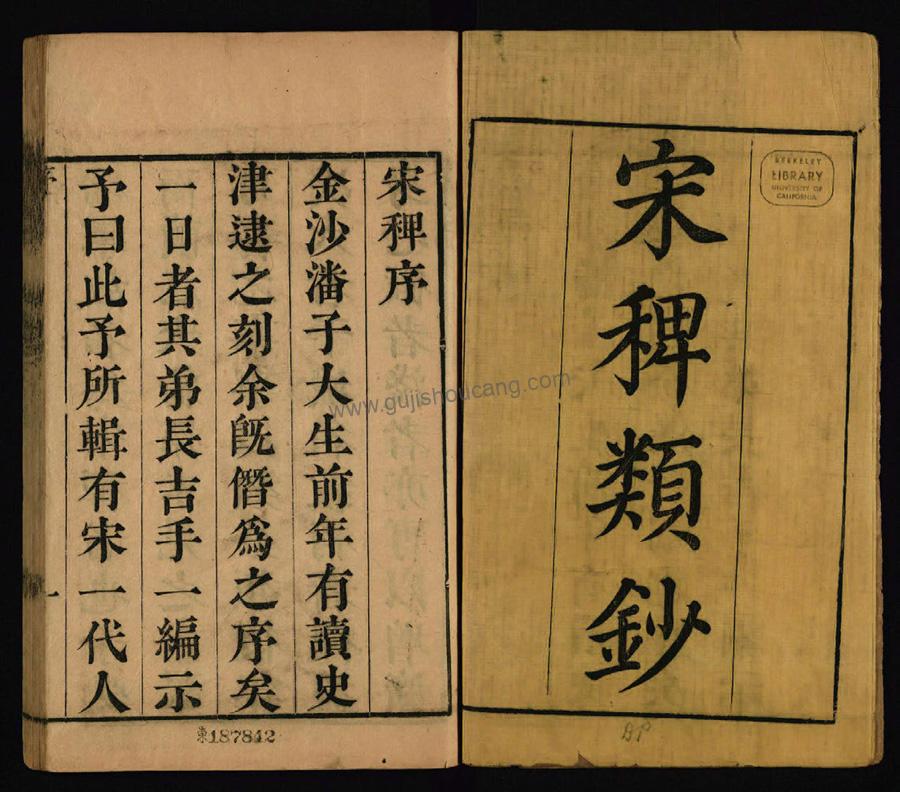 宋稗類鈔
BERKELEY
LIBRARY
UNIVERSITY OF
CALIFORNIA
宋稗序
金沙潘子大生前年有讀史
津逮之刻余既僭爲之序矣
一日者其弟長吉手一編示
予曰此予所輯有宋一代人
序
一
東187842
www.gujishoucang.com